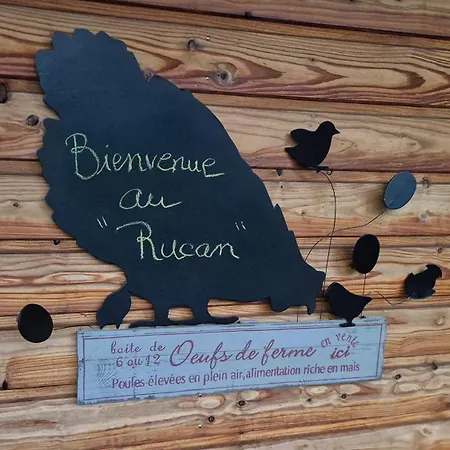 Bienvenue
au
"Rucan"
boîte de
6 ou 12 Oeufs de ferme en vente
ici
Poules élevées en plein air, alimentation riche en mais